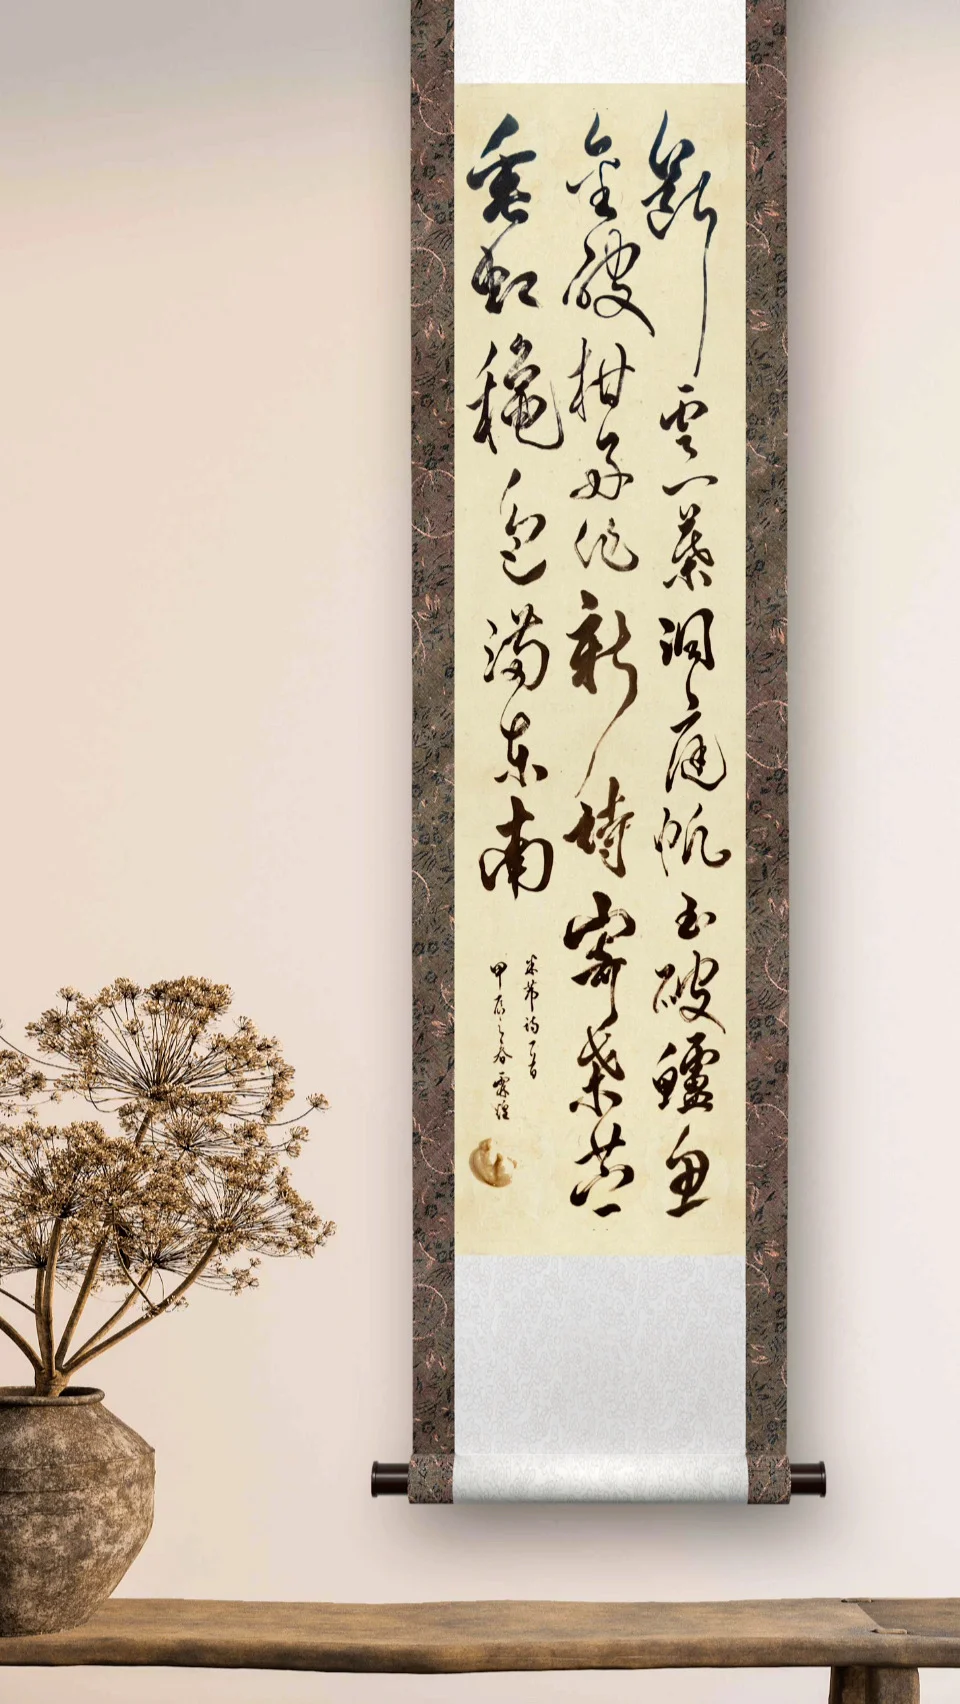 斷雲一葉洞庭帆玉破鱸魚
金破柑好作新詩寄桑苎
垂虹穐色滿東南
米芾詩一首
甲辰之春